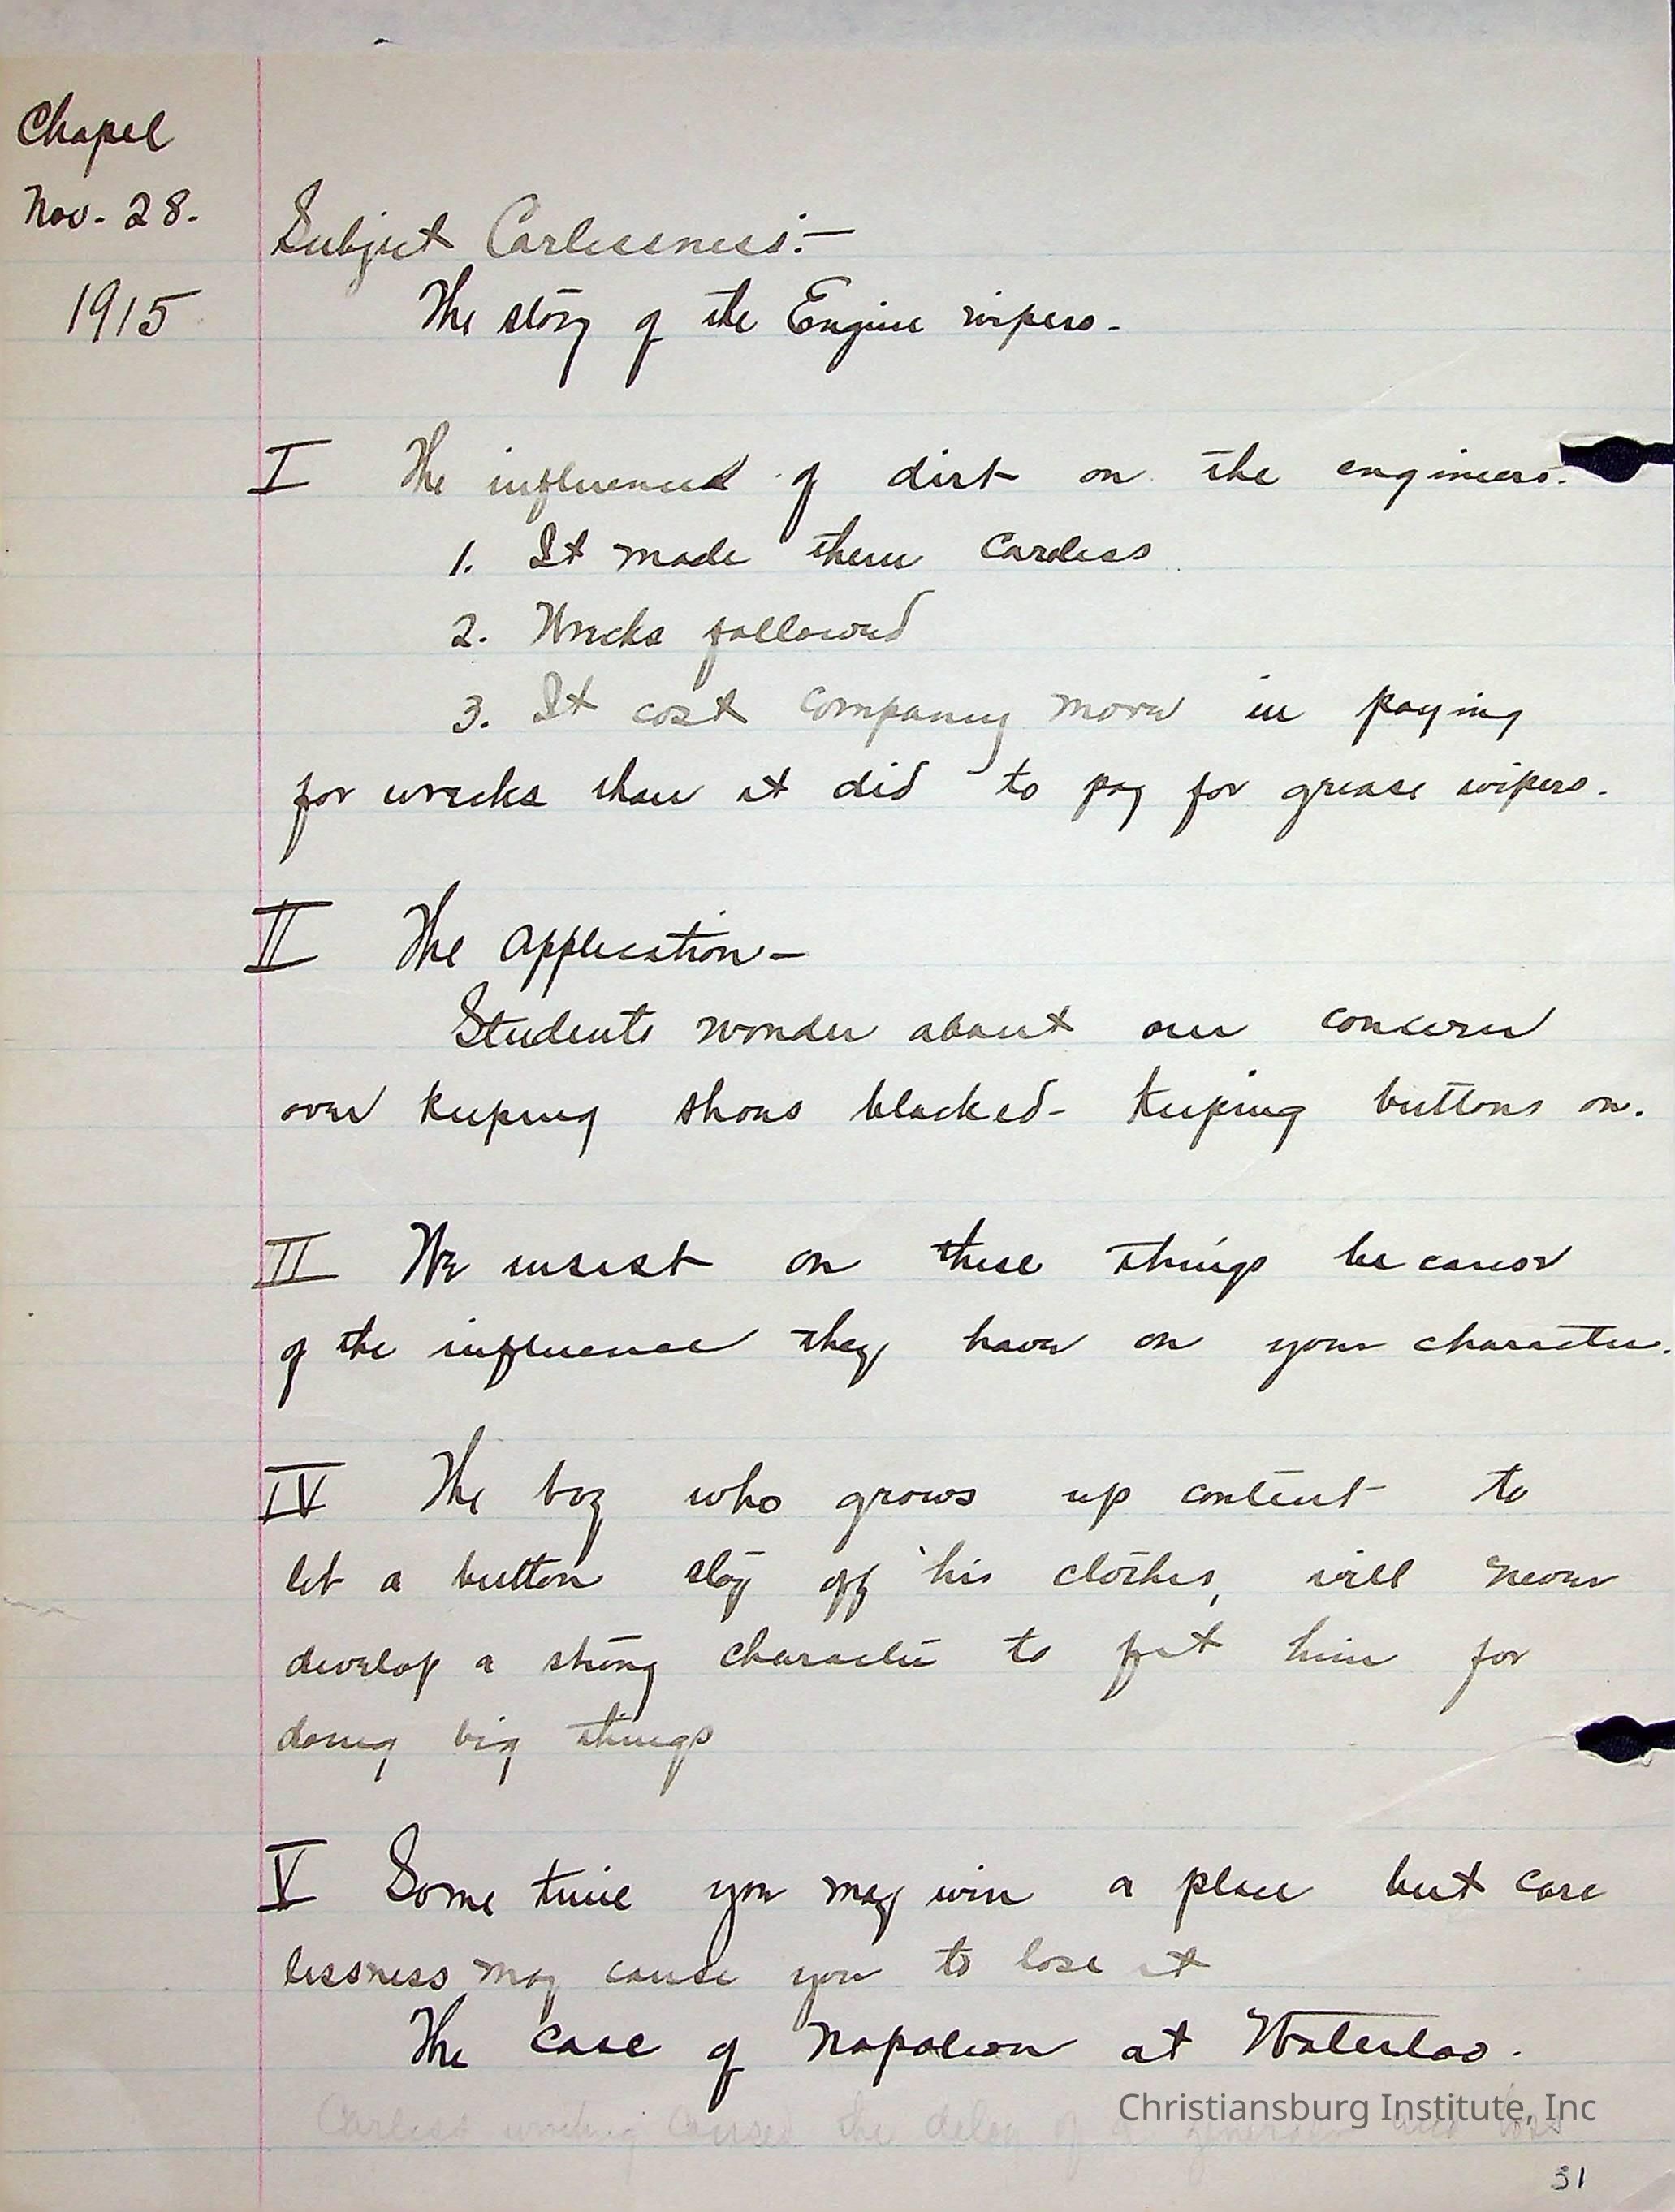 Chapel
Nov. 28.
1915
Subject Carlessness:—
The story of the Engine wipers.
I The influence of dirt on the engineers.
1. It made them careless
2. Wrecks followed
3. It cost company more in paying
for wrecks than it did to pay for grease wipers.
II The Application—
Students wonder about our concern
over keeping shoes blacked- keeping buttons on.
II We insist on these things because
of the influence they have on your character.
IV The boy who grows up content to
let a button stay off his clothes, will never
develop a strong character to fit him for
doing big things
V Some time you may win a place but care
lessness may cause you to lose it
The case of Napoleon at Waterloo.
Careless writing caused the delay of a general and loss
Christiansburg Institute, Inc
31